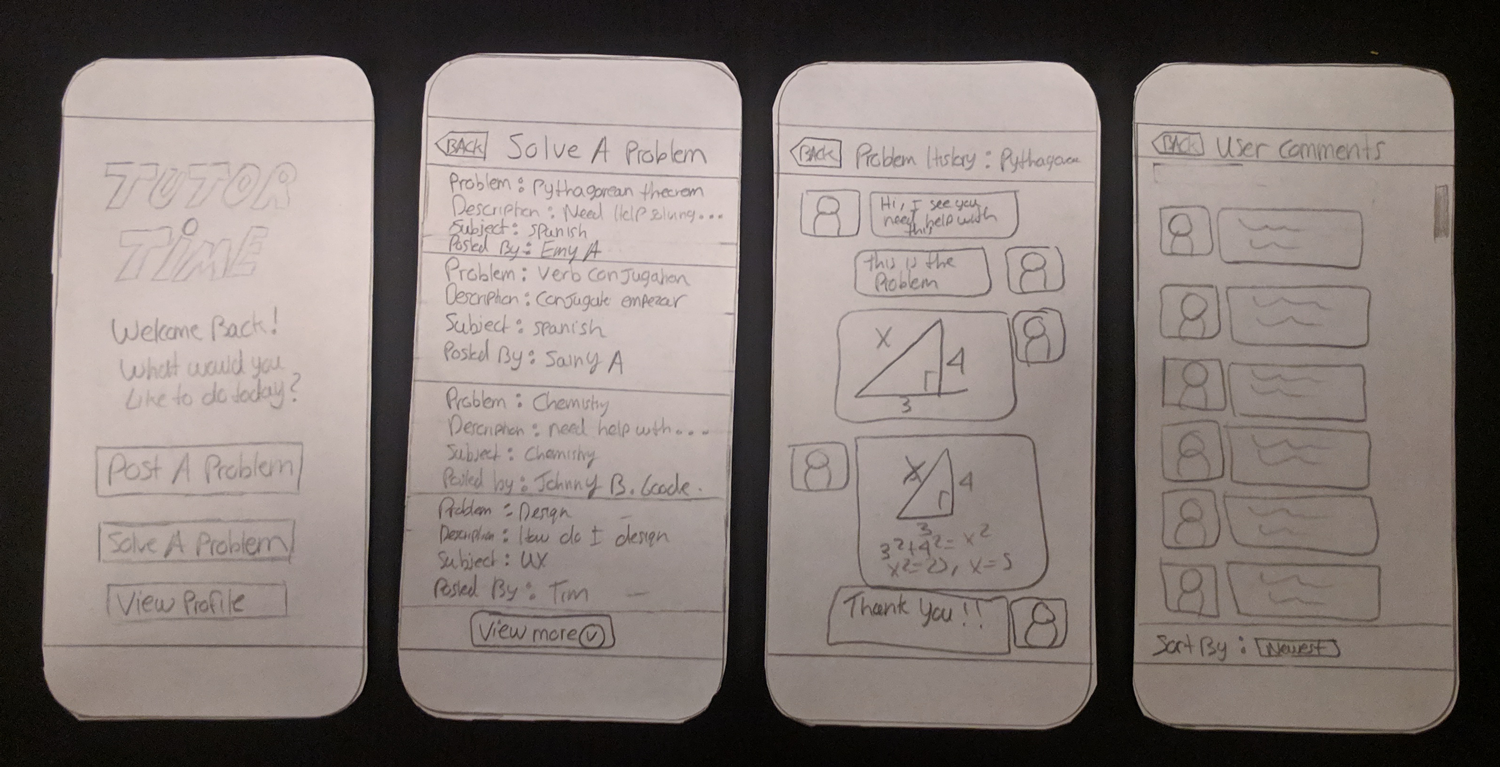 TUTOR
TIME
Welcome Back!
What would you
Like to do today?
Post A Problem
Solve A Problem
View Profile
BACK
Solve A Problem
Problem: Pythagorean theorem
Description: Need Help solving...
Subject: Spanish
Posted By: Emy A
Problem: Verb Conjugation
Description: Conjugate empezar
Subject: Spanish
Posted By: Sainy A
Problem: Chemistry
Description: need help with...
Subject: Chemistry
Posted by: Johnny B. Goode.
Problem: Design
Description: How do I design
Subject: UX
Posted By: Tim
View more
BACK
Problem History: Pythagorean
Hi, I see you
need help with
this
this is the
Problem
X
4
3
X
4
3
3²+4²=x²
x²=25, x=5
Thank You!!
BACK
User Comments
Sort By: Newest